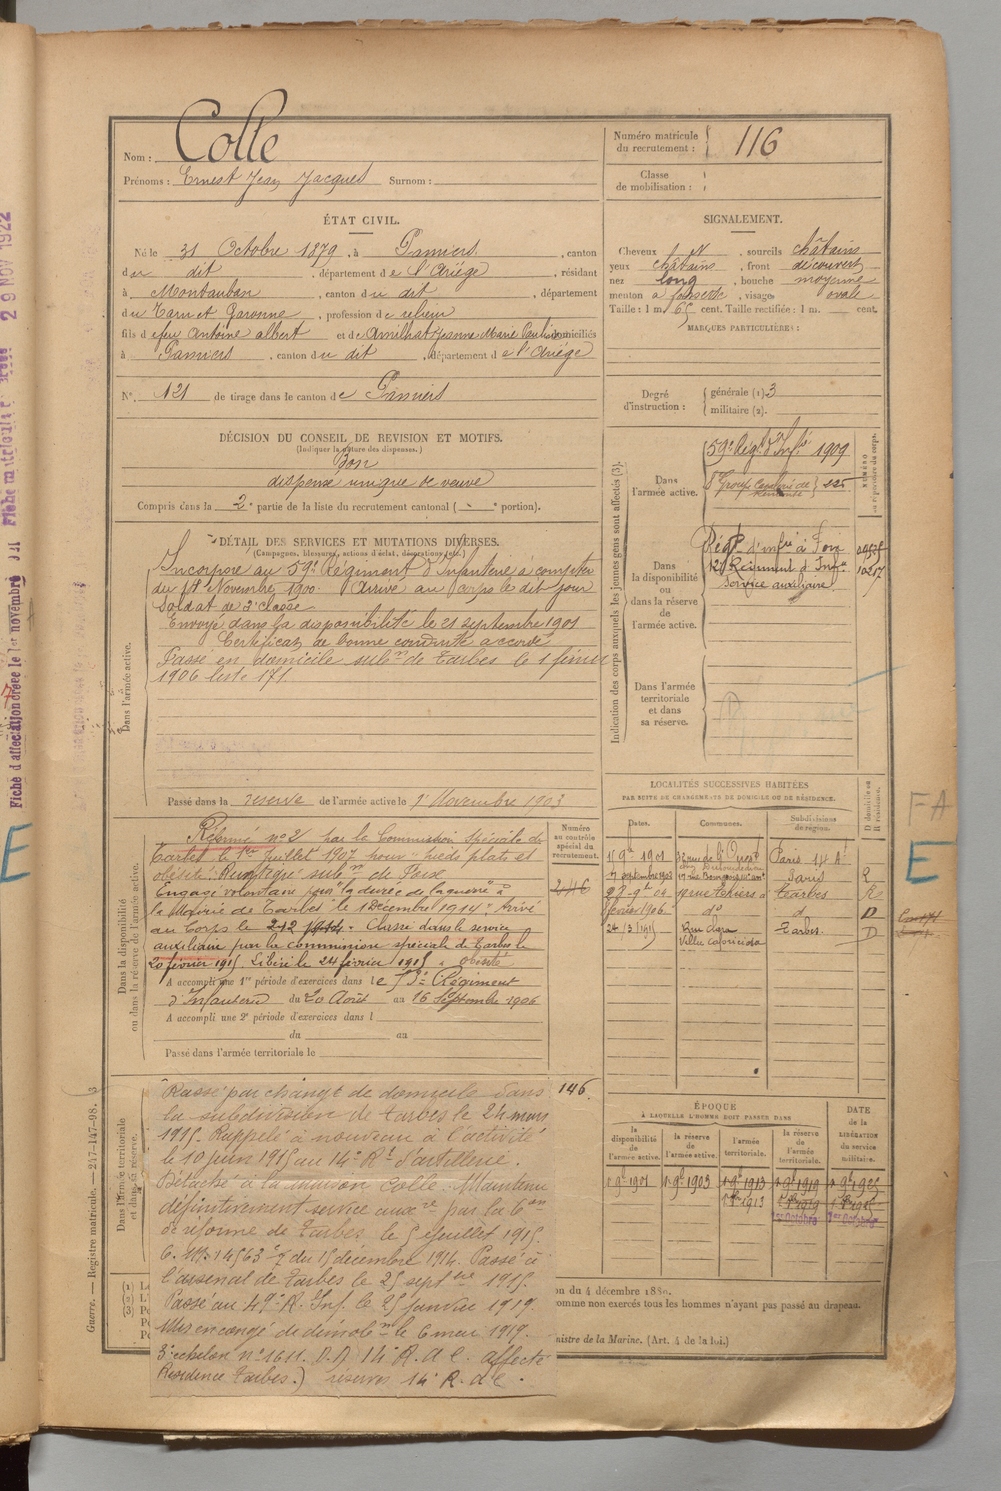 Nom : Colle
Prénoms : Ernest Jean Jacques Surnom :
Numéro matricule du recrutement : 116
Classe de mobilisation :
ÉTAT CIVIL.
Né le 31 Octobre 1879, à Pamiers, canton
du dit, département de l'Ariège, résidant
à Montauban, canton du dit, département
du Tarn et Garonne, profession de relieur
fils de feu Antoine albert et de Amilhat Jeanne Marie domiciliés
à Pamiers, canton du dit, département de l'Ariège
N° 121 de tirage dans le canton de Pamiers
SIGNALEMENT.
Cheveux, sourcils châtains
yeux châtains, front découvert
nez long, bouche moyenne
menton à fossette, visage ovale
Taille : 1 m. 65 cent. Taille rectifiée : 1 m. cent.
MARQUES PARTICULIÈRES :
Degré d'instruction : générale (1) 3
militaire (2).
DÉCISION DU CONSEIL DE REVISION ET MOTIFS.
(Indiquer la nature des dispenses.)
Bon
dispensé unique de veuve
Compris dans la 2e partie de la liste du recrutement cantonal ( - e portion).
DÉTAIL DES SERVICES ET MUTATIONS DIVERSES.
(Campagnes, blessures, actions d'éclat, décorations, etc.)
Dans l'armée active.
Incorporé au 59e Régiment d'Infanterie à compter
du 18 Novembre 1900. Arrivé au corps le dit jour
Soldat de 2e classe
Envoyé dans la disponibilité le 21 septembre 1901
Certificat de bonne conduite accordé
Passé en domicile subon de Tarbes le 1 février
1906 liste 171.
Passé dans la réserve de l'armée active le 1er Novembre 1903
Indication des corps auxquels les jeunes gens sont affectés (3).
NUMÉRO au répertoire du corps.
Dans l'armée active.
59e Régt d'Infie 1909
Dans la disponibilité ou dans la réserve de l'armée active.
Régt d'infie à Foix
12e Régiment d'Infie 10217
Service auxiliaire
Dans l'armée territoriale et dans sa réserve.
Dans la disponibilité ou dans la réserve de l'armée active.
Numéro au contrôle spécial du recrutement.
Réformé n° 2 par la Commission Spéciale de
Tarbes le 1er Juillet 1907 pour "pieds plats et
obésité".
Engagé volontaire pour "la durée de la guerre" à
la Mairie de Tarbes le 1 Décembre 1914. Arrivé
au Corps le 2-12 1914. Classé dans le service
auxiliaire par la commission spéciale de Tarbes le
20 février 1915. Libéré le 24 février 1915 obésité
246
A accompli une 1re période d'exercices dans le Régiment
d'Infanterie du 20 Août au 16 Septembre 1906
A accompli une 2e période d'exercices dans l
du au
Passé dans l'armée territoriale le
LOCALITÉS SUCCESSIVES HABITÉES
PAR SUITE DE CHANGEMENTS DE DOMICILE OU DE RÉSIDENCE.
Dates. Communes. Subdivisions de région. D domicile ou R résidence.
Paris
17 septembre 1903 Paris R
27 9bre 04 19 rue Thiers à Tarbes R
1 février 1906 do d D
24/3/1915 Tarbes D
Dans l'armée territoriale et dans sa réserve.
Passé par changt de domicile dans 146.
la subdivision de Tarbes le 24 mars
1915. Rappelé à nouveau à l'activité
le 10 juin 1915 au 14e Rt d'artillerie.
Détaché à la maison Colle. Maintenu
définitivement service auxre par la Con
de réforme de Tarbes le 5 juillet 1915.
C. M. 14563 du 15 décembre 1914. Passé à
l'arsenal de Tarbes le 25 septbre 1915.
Passé au 49e R. Inf. le 25 janvier 1919.
Mis en congé de démobon le 6 mars 1919.
3e échelon n° 1611. D.D 14e R.a.c. affecté
Résidence Tarbes.) réserves 14e R.a.c.
ÉPOQUE
À LAQUELLE L'HOMME DOIT PASSER DANS
DATE de la LIBÉRATION du service militaire.
la disponibilité de l'armée active. la réserve de l'armée active. l'armée territoriale. la réserve de l'armée territoriale.
1 9bre 1901 1 9bre 1903 1 9bre 1913 1 9bre 1919 1 9bre 1925
1er Octobre 1er Octobre
Guerre. — Registre matricule. — 247-147-98.
du 4 décembre 1889.
comme non exercés tous les hommes n'ayant pas passé au drapeau.
nistre de la Marine. (Art. 4 de la loi.)
29 NOV 1922
Fiche d'affectation créée le 1er novembre
E
FA
E